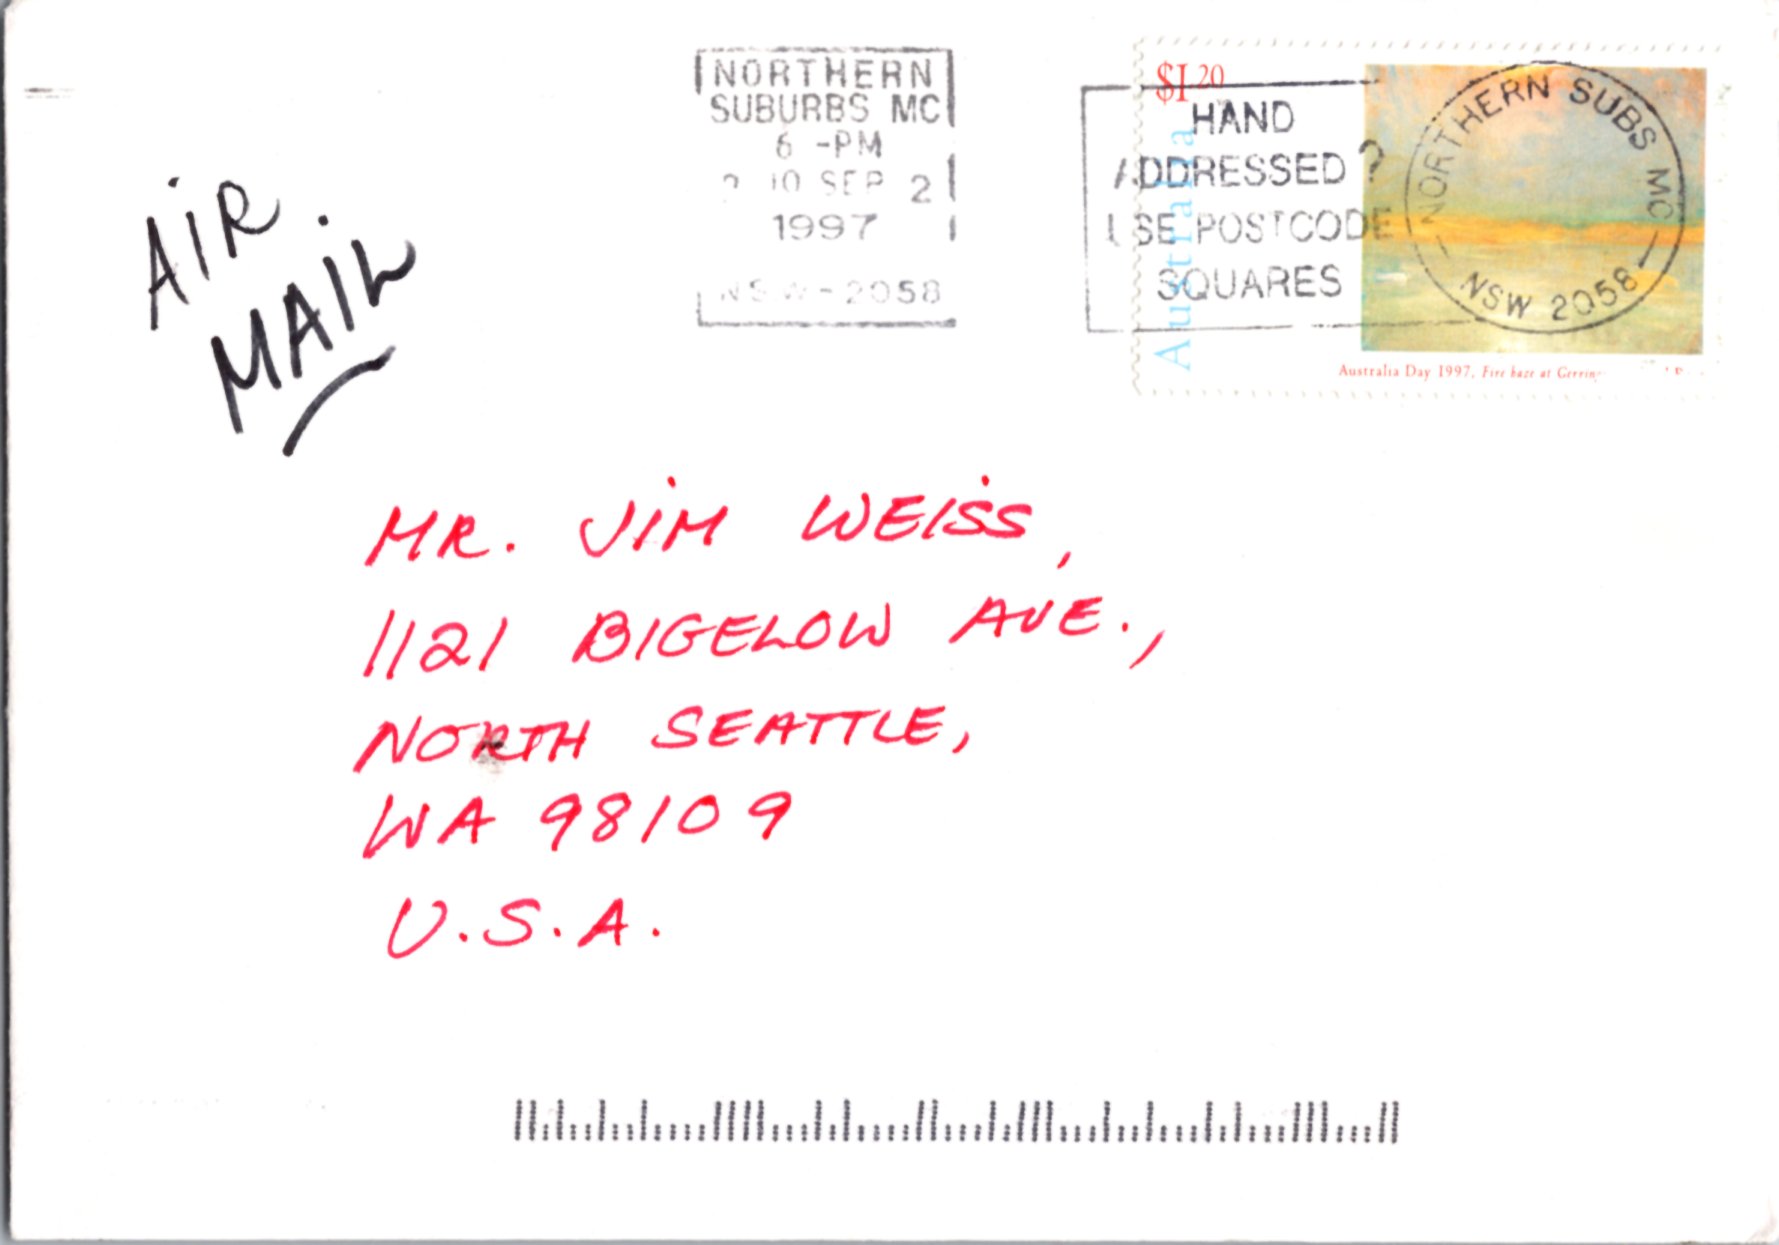 NORTHERN
SUBURBS MC
6 -PM
2 10 SEP 2
1997
NSW-2058
$1.20
Australia
HAND
ADDRESSED ?
USE POSTCODE
SQUARES
NORTHERN SUBS MC
NSW 2058
Australia Day 1997, Fire haze at
AIR
MAIL
MR. JIM WEISS,
1121 BIGELOW AVE.,
NORTH SEATTLE,
WA 98109
U.S.A.